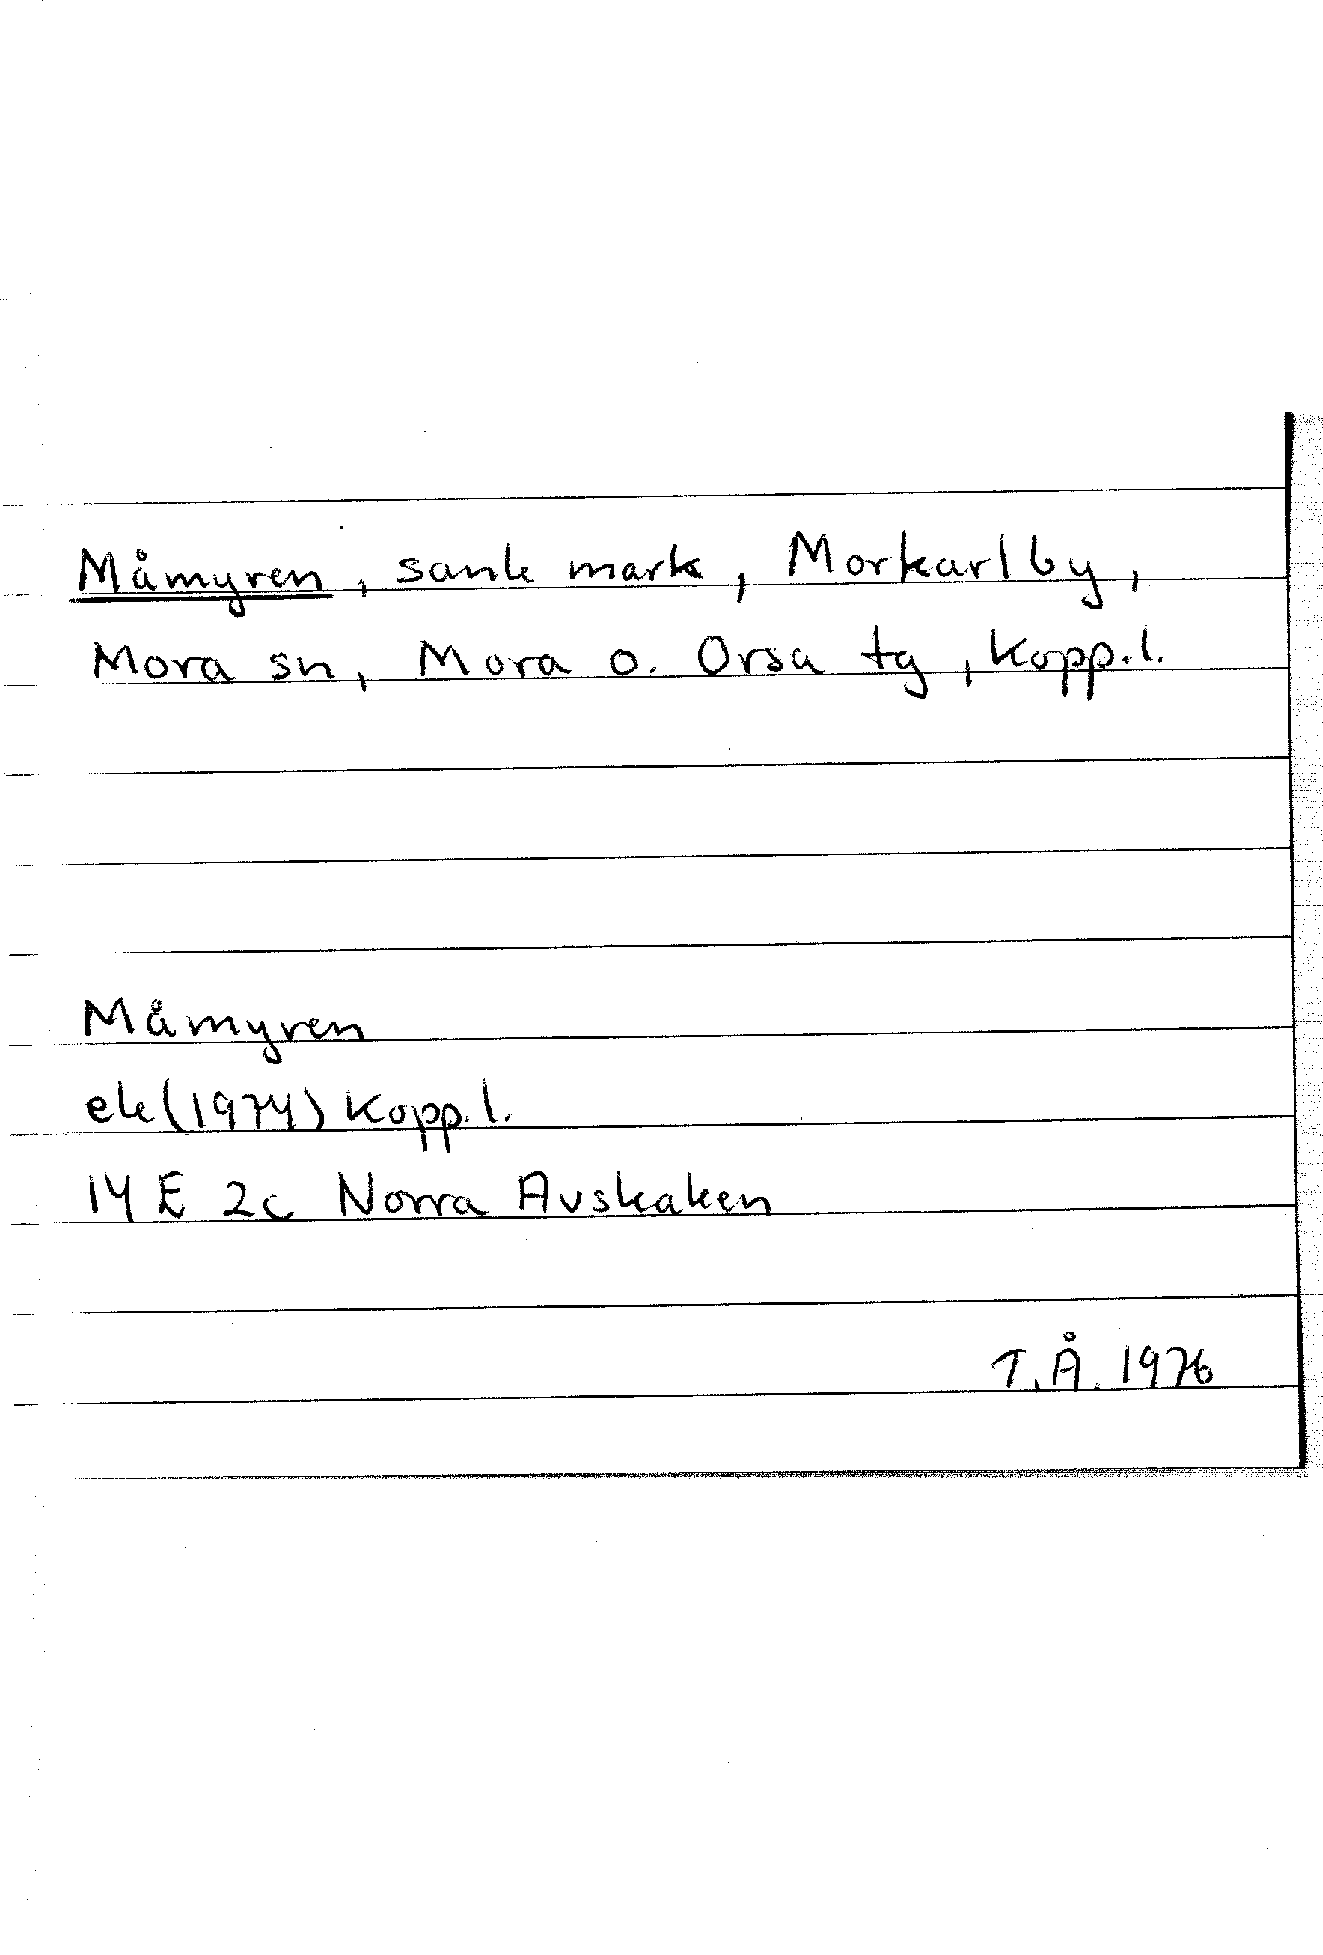 Måmyren, sank mark, Morkarlby,
Mora sn, Mora o. Orsa tg, Kopp.l.
Måmyren
ek(1974) Kopp.l.
14 E 2c Norra Avskaken
T.Å. 1976